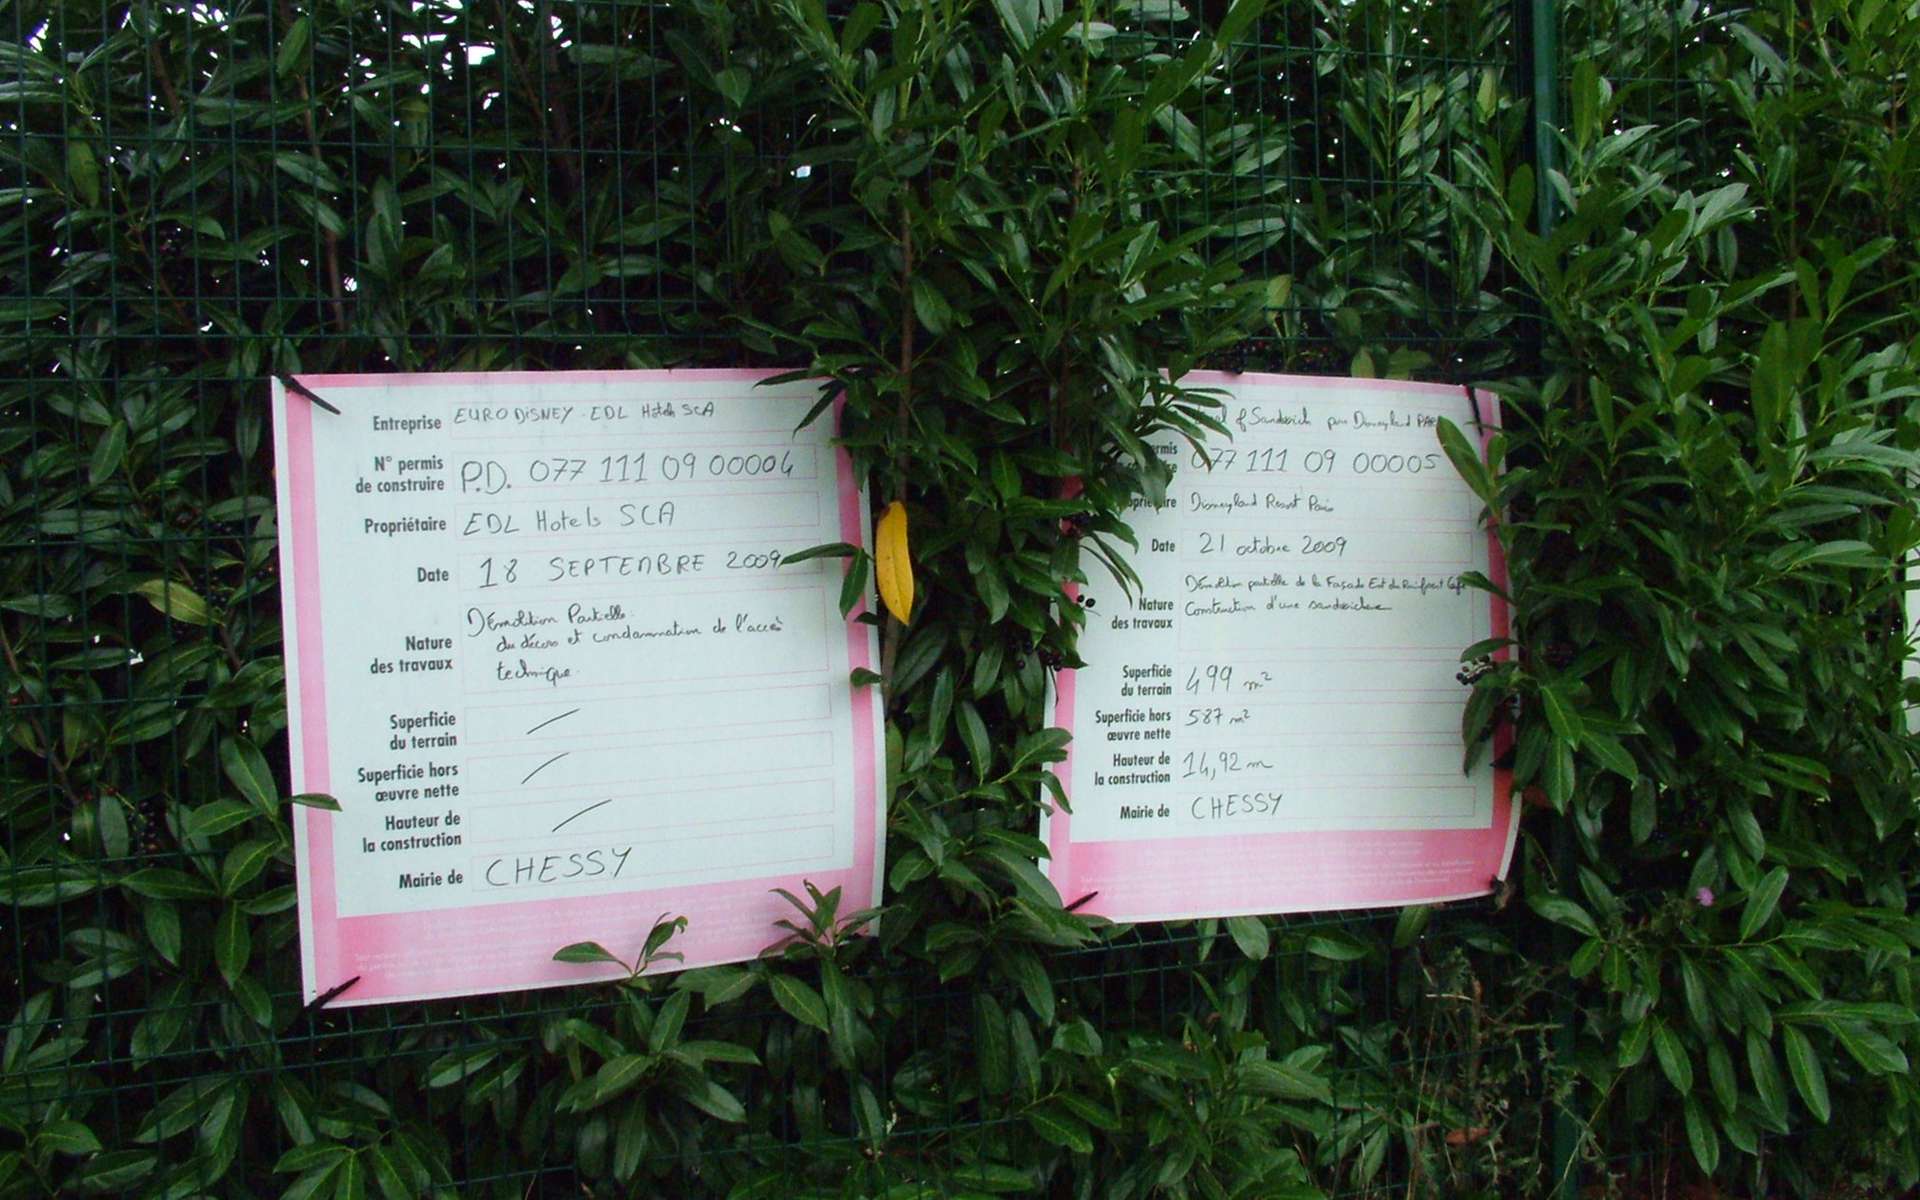 Entreprise EURO DISNEY. EDL Hotels SCA
N° permis
de construire P.D. 077 111 09 00004
Propriétaire EDL Hotels SCA
Date 18 SEPTEMBRE 2009
Nature
des travaux
Démolition Partielle
du décors et condamnation de l'accès
technique.
Superficie
du terrain
Superficie hors
œuvre nette
Hauteur de
la construction
Mairie de CHESSY
of Sandwich pour Disneyland PAR
ermis
077 111 09 00005
opriétaire Disneyland Resort Paris
Date 21 octobre 2009
Nature
des travaux
Démolition partielle de la Façade Est du Rainforest Café
Construction d'une sandwicherie
Superficie
du terrain 499 m²
Superficie hors
œuvre nette 587 m²
Hauteur de
la construction 14,92 m
Mairie de CHESSY